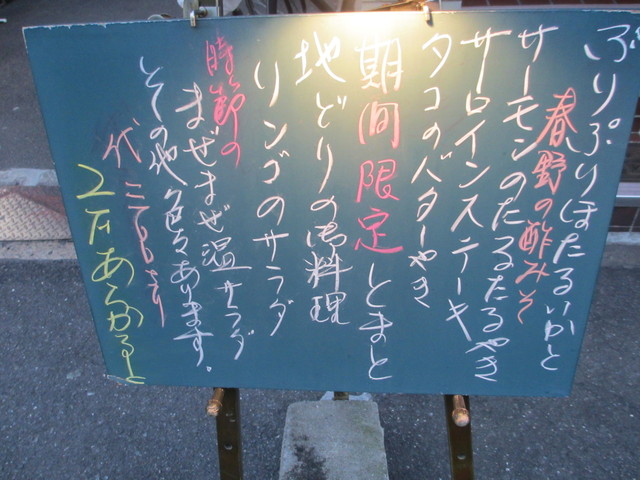 ぷりぷりほたるいかと
春野の酢みそ
サーモンのたるたるやき
サーロインステーキ
タコのバターやき
期間限定とまと
地どりの御料理
リンゴのサラダ
時節の
まぜまぜ温サラダ
その他色々あります。
代
2Fあるかると